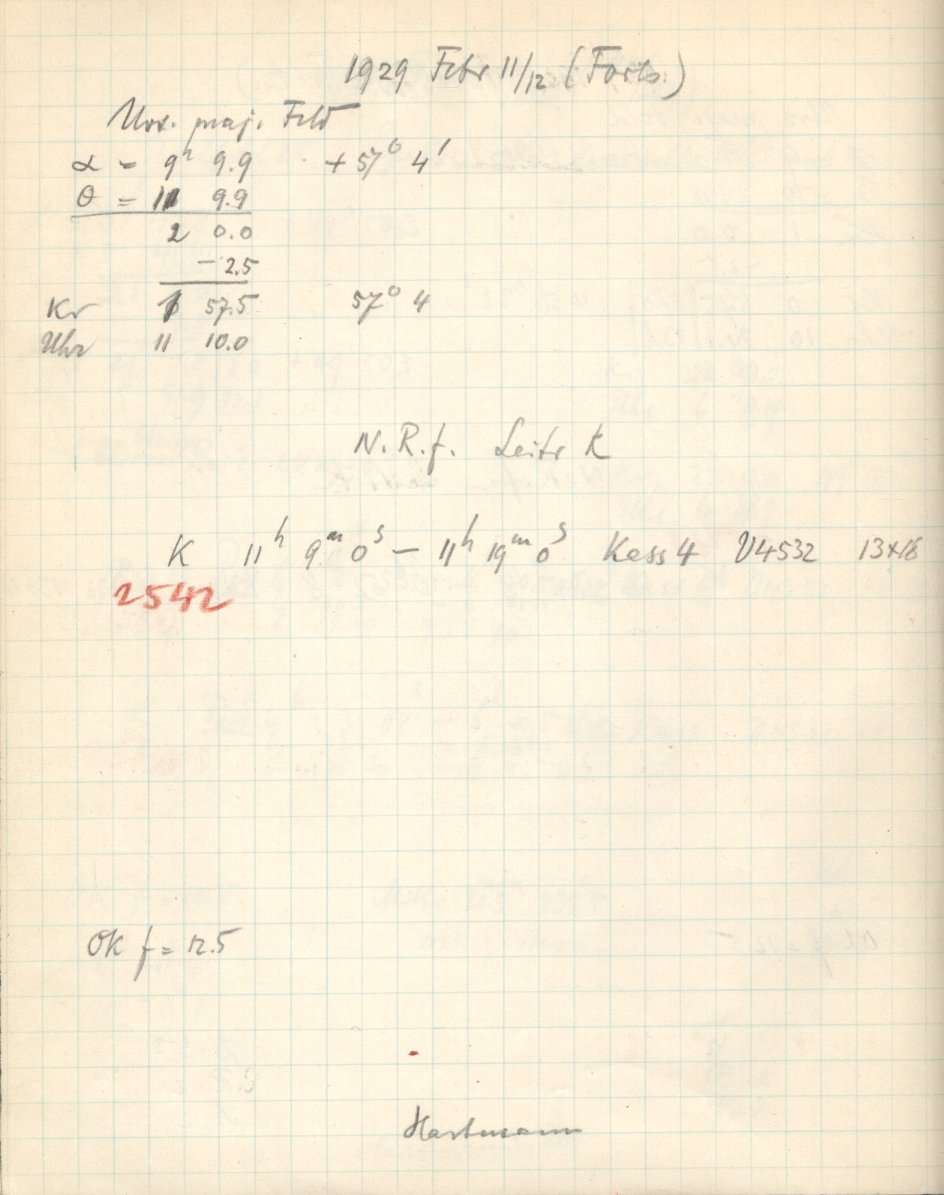 1929 Febr 11/12 (Forts.)
Urs. maj. Feld
α = 9h 9.9 + 57° 4'
θ = 11 9.9
2 0.0
- 2.5
Kr 1 57.5 57° 4
Uhr 11 10.0
N.R.f. Leitr K
K 11h 9m 0s – 11h 19m 0s Kass 4 U4532 13×18
2542
Ok f = 12.5
Hartmann